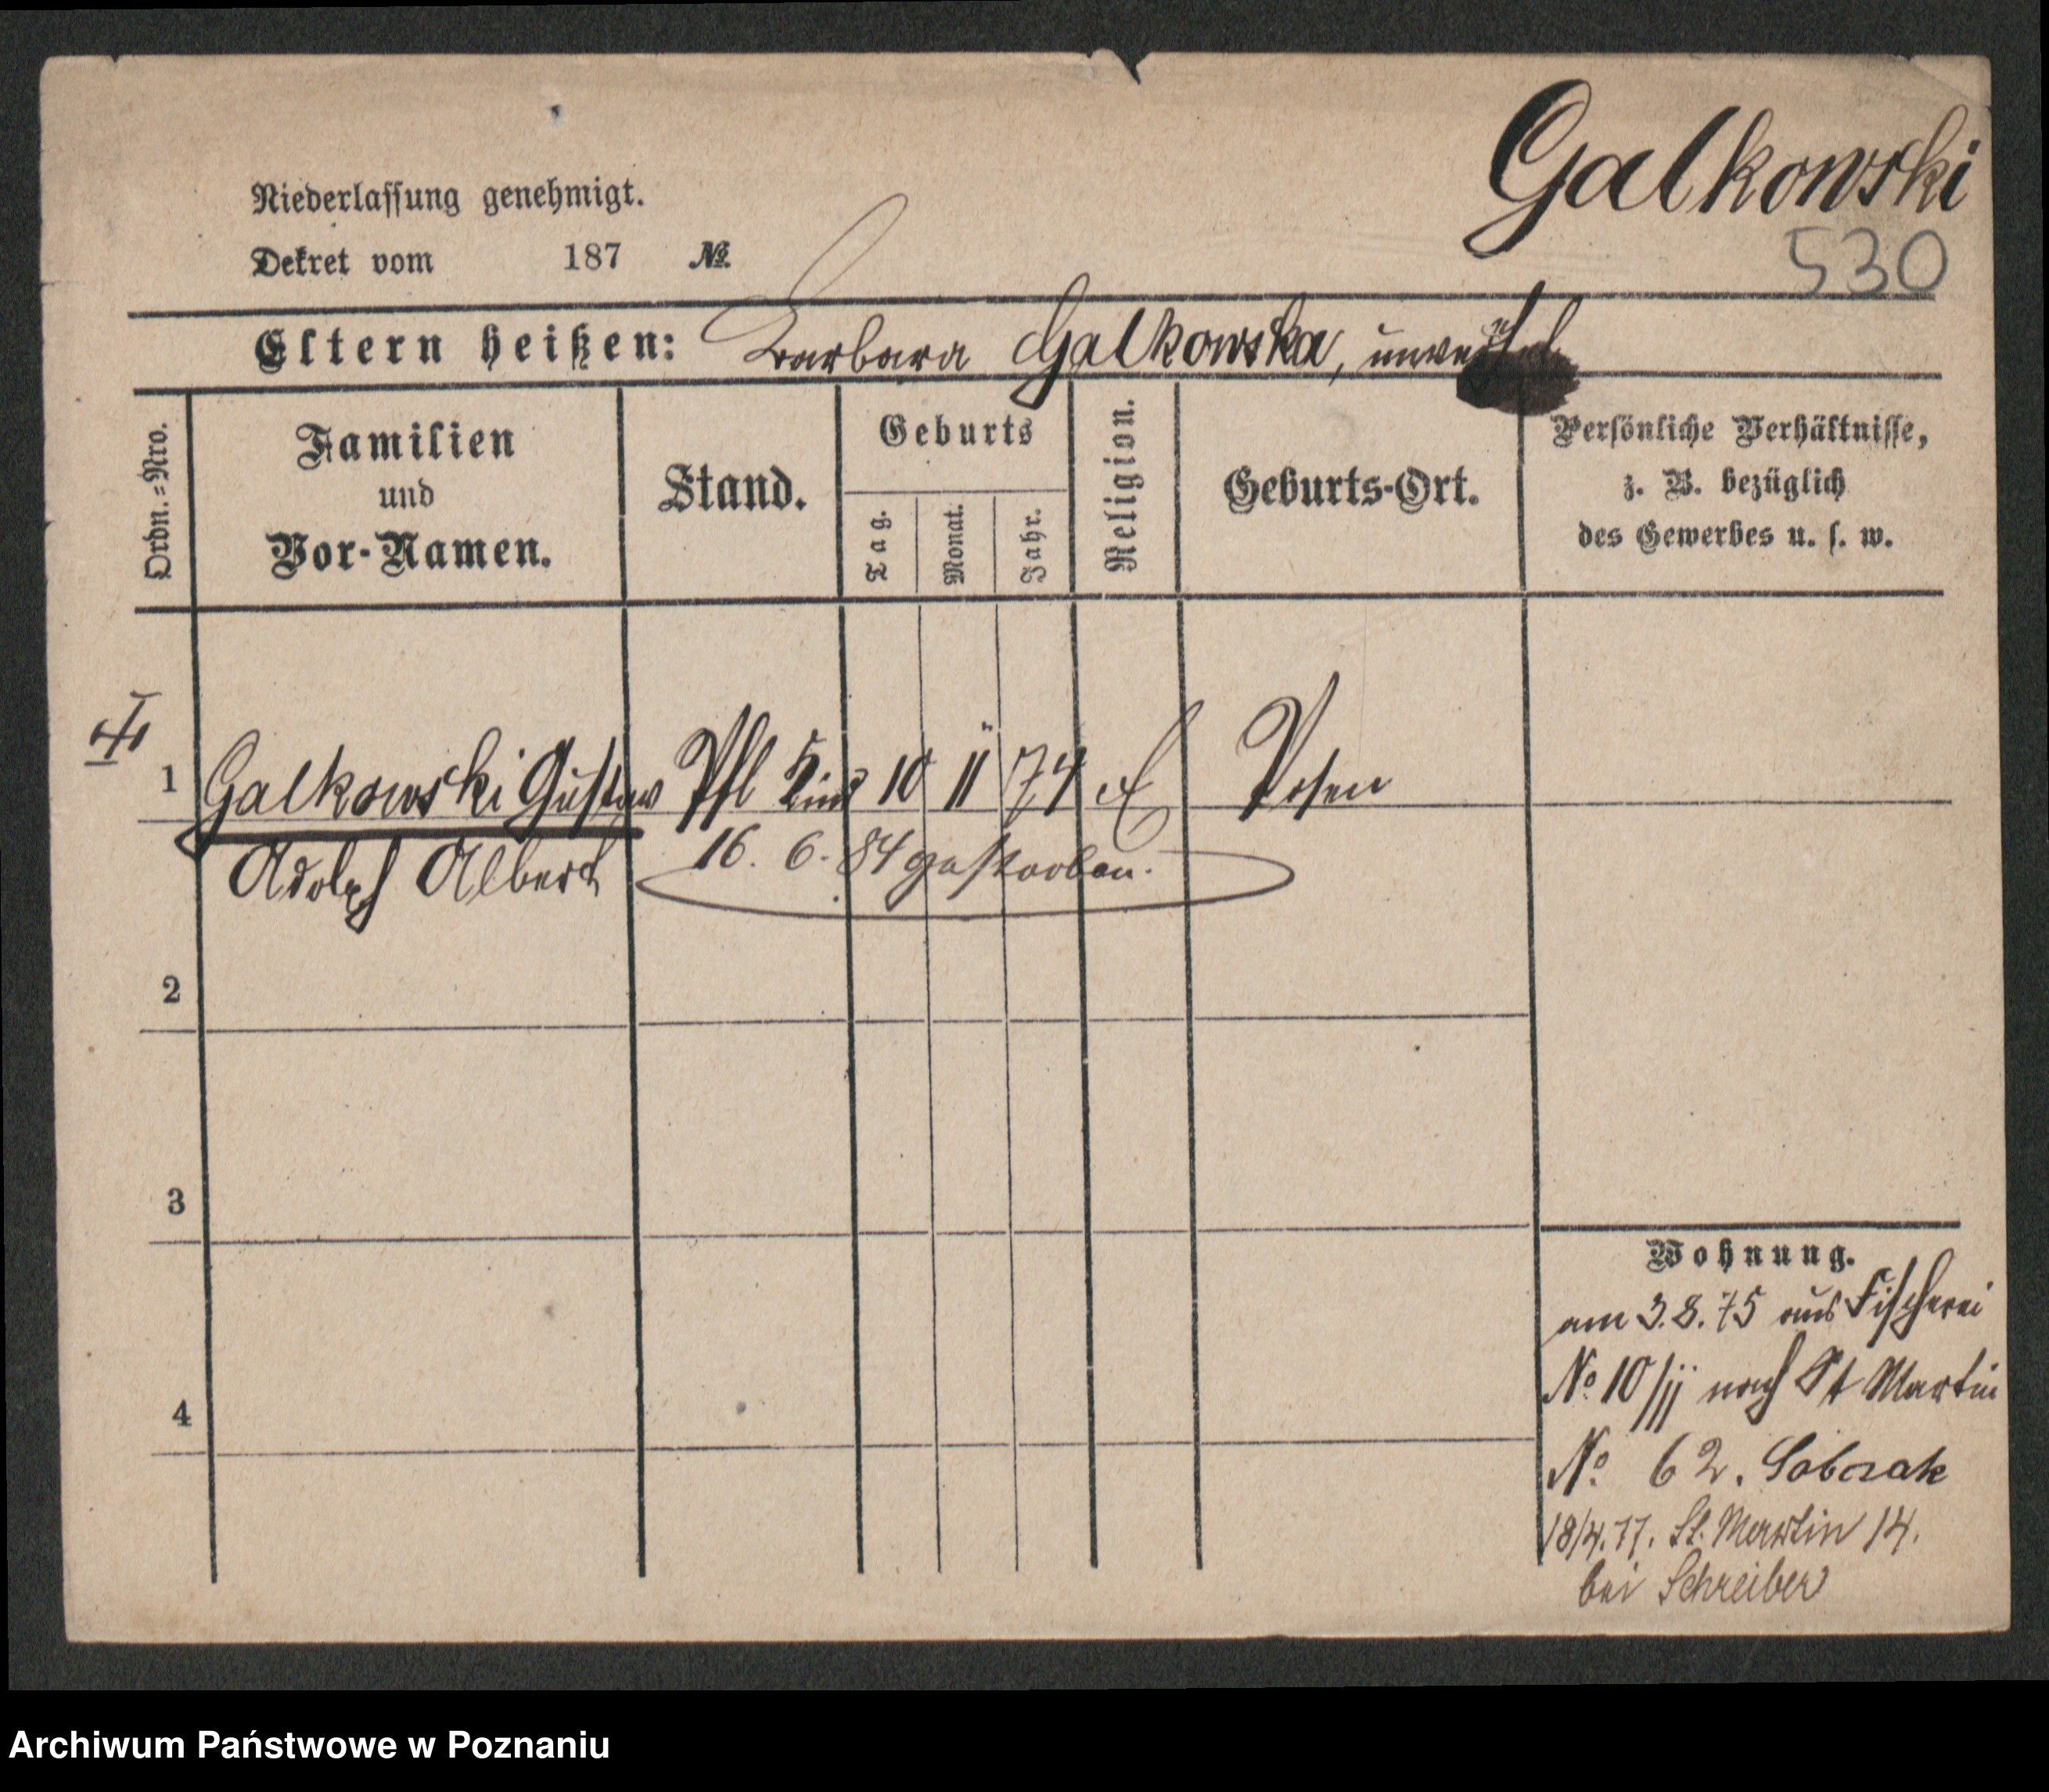 Galkowski
530
Niederlassung genehmigt.
Dekret vom 187 №
Eltern heißen: Barbara Galkowska,
Ordn.=Nro.
Familien
und
Vor-Namen.
Stand.
Geburts
Tag.
Monat.
Jahr.
Religion.
Geburts-Ort.
Persönliche Verhältnisse,
z. B. bezüglich
des Gewerbes u. s. w.
1 Galkowski Gustav Pfl Kind 10 11 74 Posen
Adolph Albert 16. 6. 84 gestorben.
2
3
4
Wohnung.
am 3.8.75 aus Fischerei
No 10/jj nach St Martin
No 62. Sobczak
18/4.77. St. Martin 14.
bei Schreiber
Archiwum Państwowe w Poznaniu